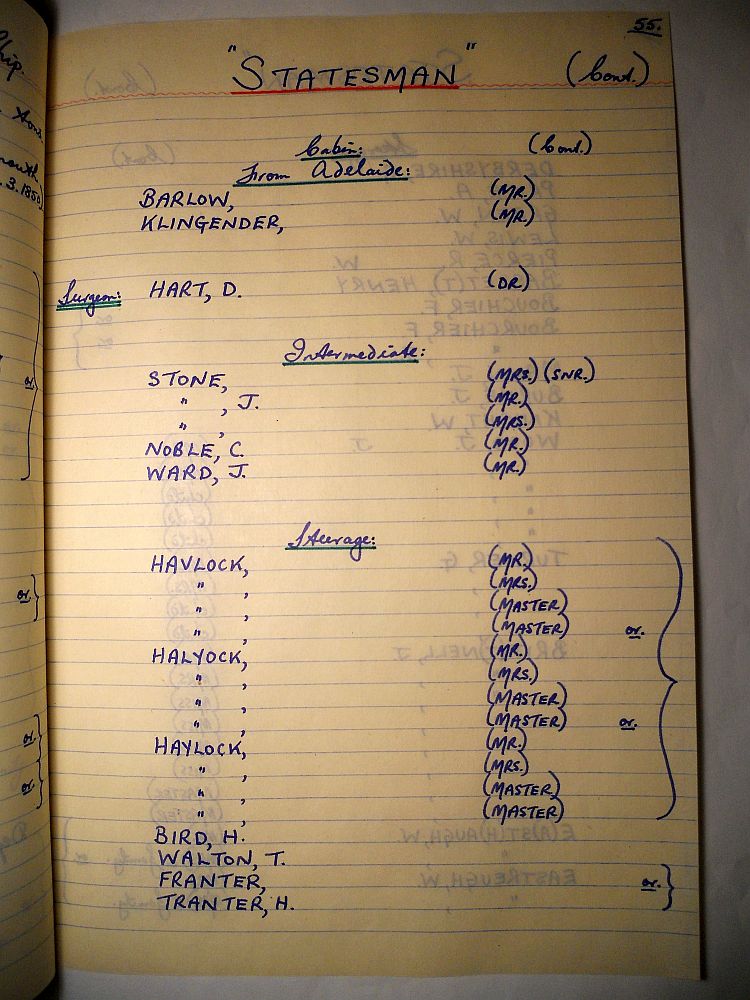 55.
"STATESMAN" (Cont.)
Cabin: (Cont.)
From Adelaide:
BARLOW, (MR.)
KLINGENDER, (MR.)
Surgeon: HART, D. (DR)
Intermediate:
STONE, (MRS.) (SNR.)
" , J. (MR.)
" , (MRS.)
NOBLE, C. (MR.)
WARD, J. (MR.)
Steerage:
HAVLOCK, (MR.)
" , (MRS.)
" , (MASTER)
" , (MASTER) or.
HALYOCK, (MR.)
" , (MRS.)
" , (MASTER)
" , (MASTER) or.
HAYLOCK, (MR.)
" , (MRS.)
" , (MASTER)
" , (MASTER)
BIRD, H.
WALTON, T.
FRANTER, or.
TRANTER, H.